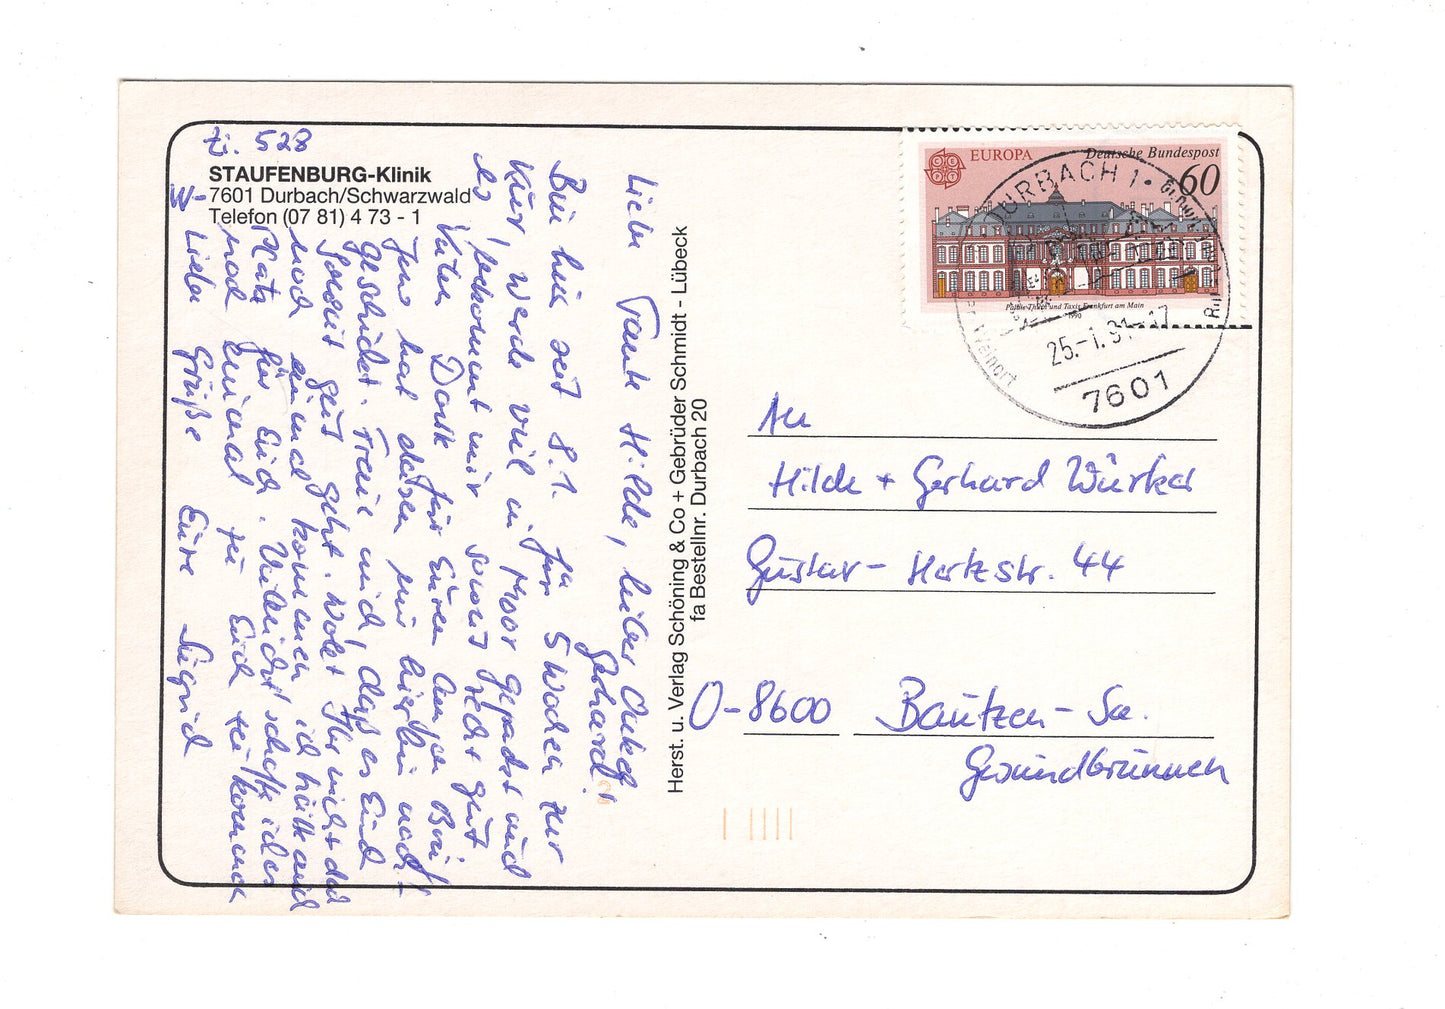 Zi. 528
STAUFENBURG-Klinik
7601 Durbach/Schwarzwald
Telefon (07 81) 4 73 - 1
Liebe Tante Hilde, lieber Onkel
Gerhard!
Bin hier seit 8.1. für 5 Wochen zur
Kur, werde viel in Moor gepackt und
es bekommt mir sonst recht gut
Vielen Dank für Euren lieben Brief
Jens hat diesen mir hierhin nach-
geschickt. Freue mich, daß es Euch
soweit gut geht. Wollt Ihr nicht doch
noch einmal kommen, ich hätte auch
Platz für Euch. Vielleicht schaffe ich es
noch einmal zu Euch zu kommen
Liebe Grüße Eure Sigrid
Herst. u. Verlag Schöning & Co + Gebrüder Schmidt - Lübeck
fa Bestellnr. Durbach 20
EUROPA
Deutsche Bundespost
60
Palais Thurn und Taxis Frankfurt am Main
1990
DURBACH 1
25.-1.91-17
7601
An
Hilde + Gerhard Würker
Gustav-Hertzstr. 44
O-8600 Bautzen-Sa.
Gesundbrunnen